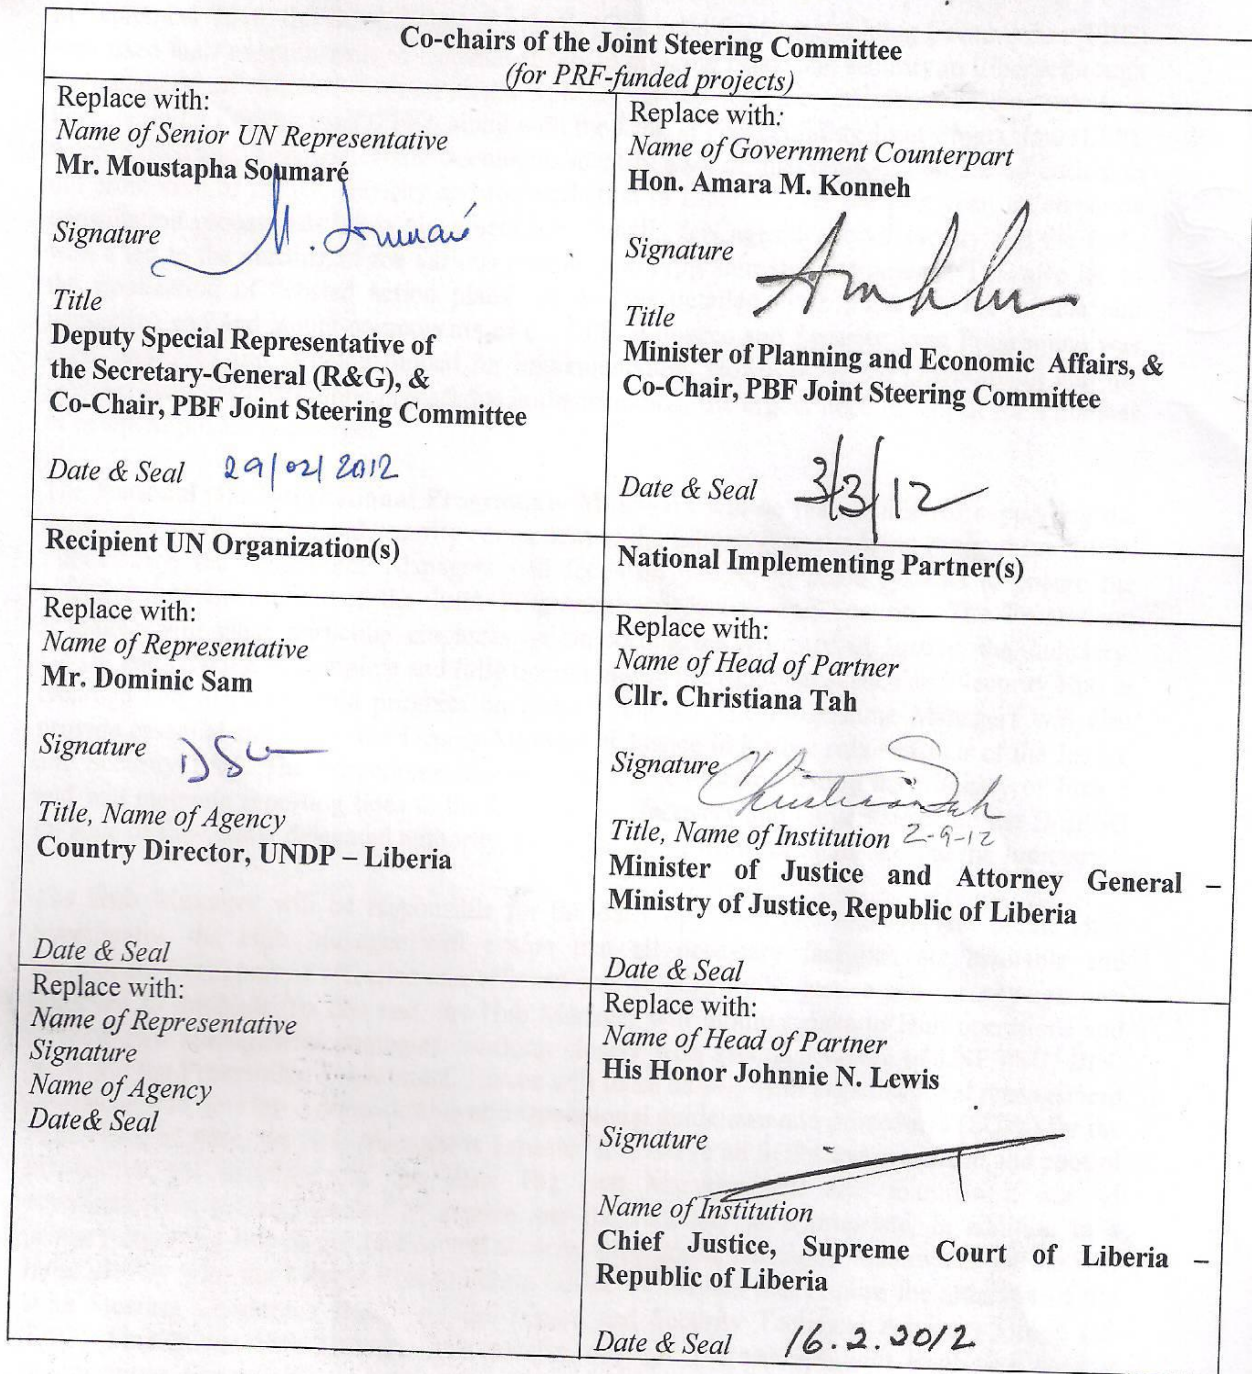 Co-chairs of the Joint Steering Committee
(for PRF-funded projects)
Replace with:
Name of Senior UN Representative
Mr. Moustapha Soumaré
Signature M. Soumaré
Title
Deputy Special Representative of
the Secretary-General (R&G), &
Co-Chair, PBF Joint Steering Committee
Date & Seal 29/02/2012
Replace with:
Name of Government Counterpart
Hon. Amara M. Konneh
Signature
Title
Minister of Planning and Economic Affairs, &
Co-Chair, PBF Joint Steering Committee
Date & Seal 3/3/12
Recipient UN Organization(s)
National Implementing Partner(s)
Replace with:
Name of Representative
Mr. Dominic Sam
Signature
Title, Name of Agency
Country Director, UNDP – Liberia
Date & Seal
Replace with:
Name of Head of Partner
Cllr. Christiana Tah
Signature Christiana Tah
Title, Name of Institution 2-9-12
Minister of Justice and Attorney General –
Ministry of Justice, Republic of Liberia
Date & Seal
Replace with:
Name of Representative
Signature
Name of Agency
Date& Seal
Replace with:
Name of Head of Partner
His Honor Johnnie N. Lewis
Signature
Name of Institution
Chief Justice, Supreme Court of Liberia –
Republic of Liberia
Date & Seal 16.2.2012